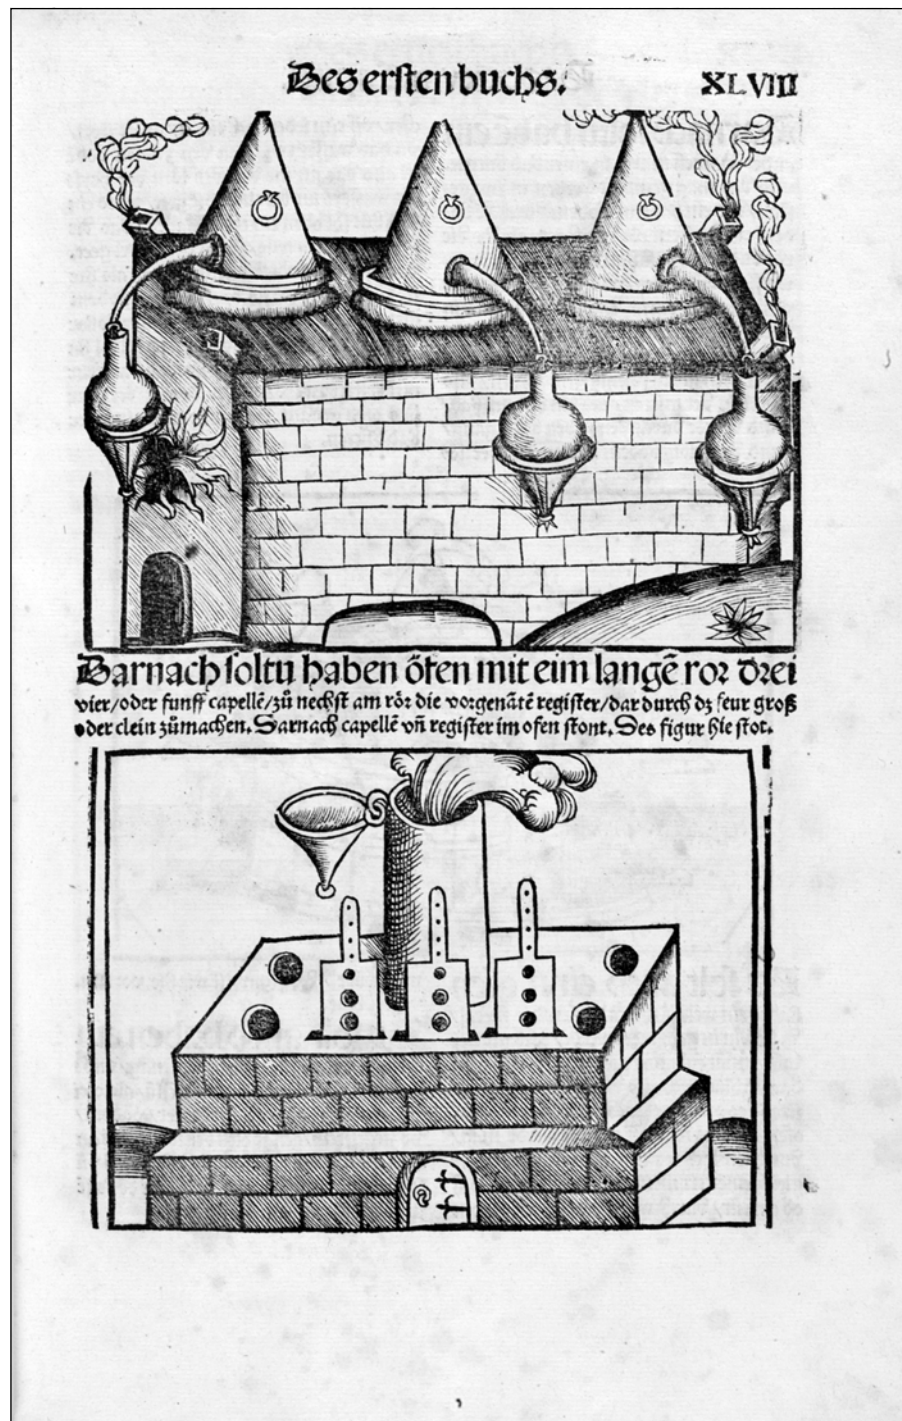 Des ersten buchs.
XLVIII
Darnach soltu haben öfen mit eim langē ror drei
vier/oder funff capellē/zů nechst am rör die vorgenātē register/dar durch dz feur groß
oder clein zůmachen. Darnach capellē vñ register im ofen stont. Des figur hie stot.